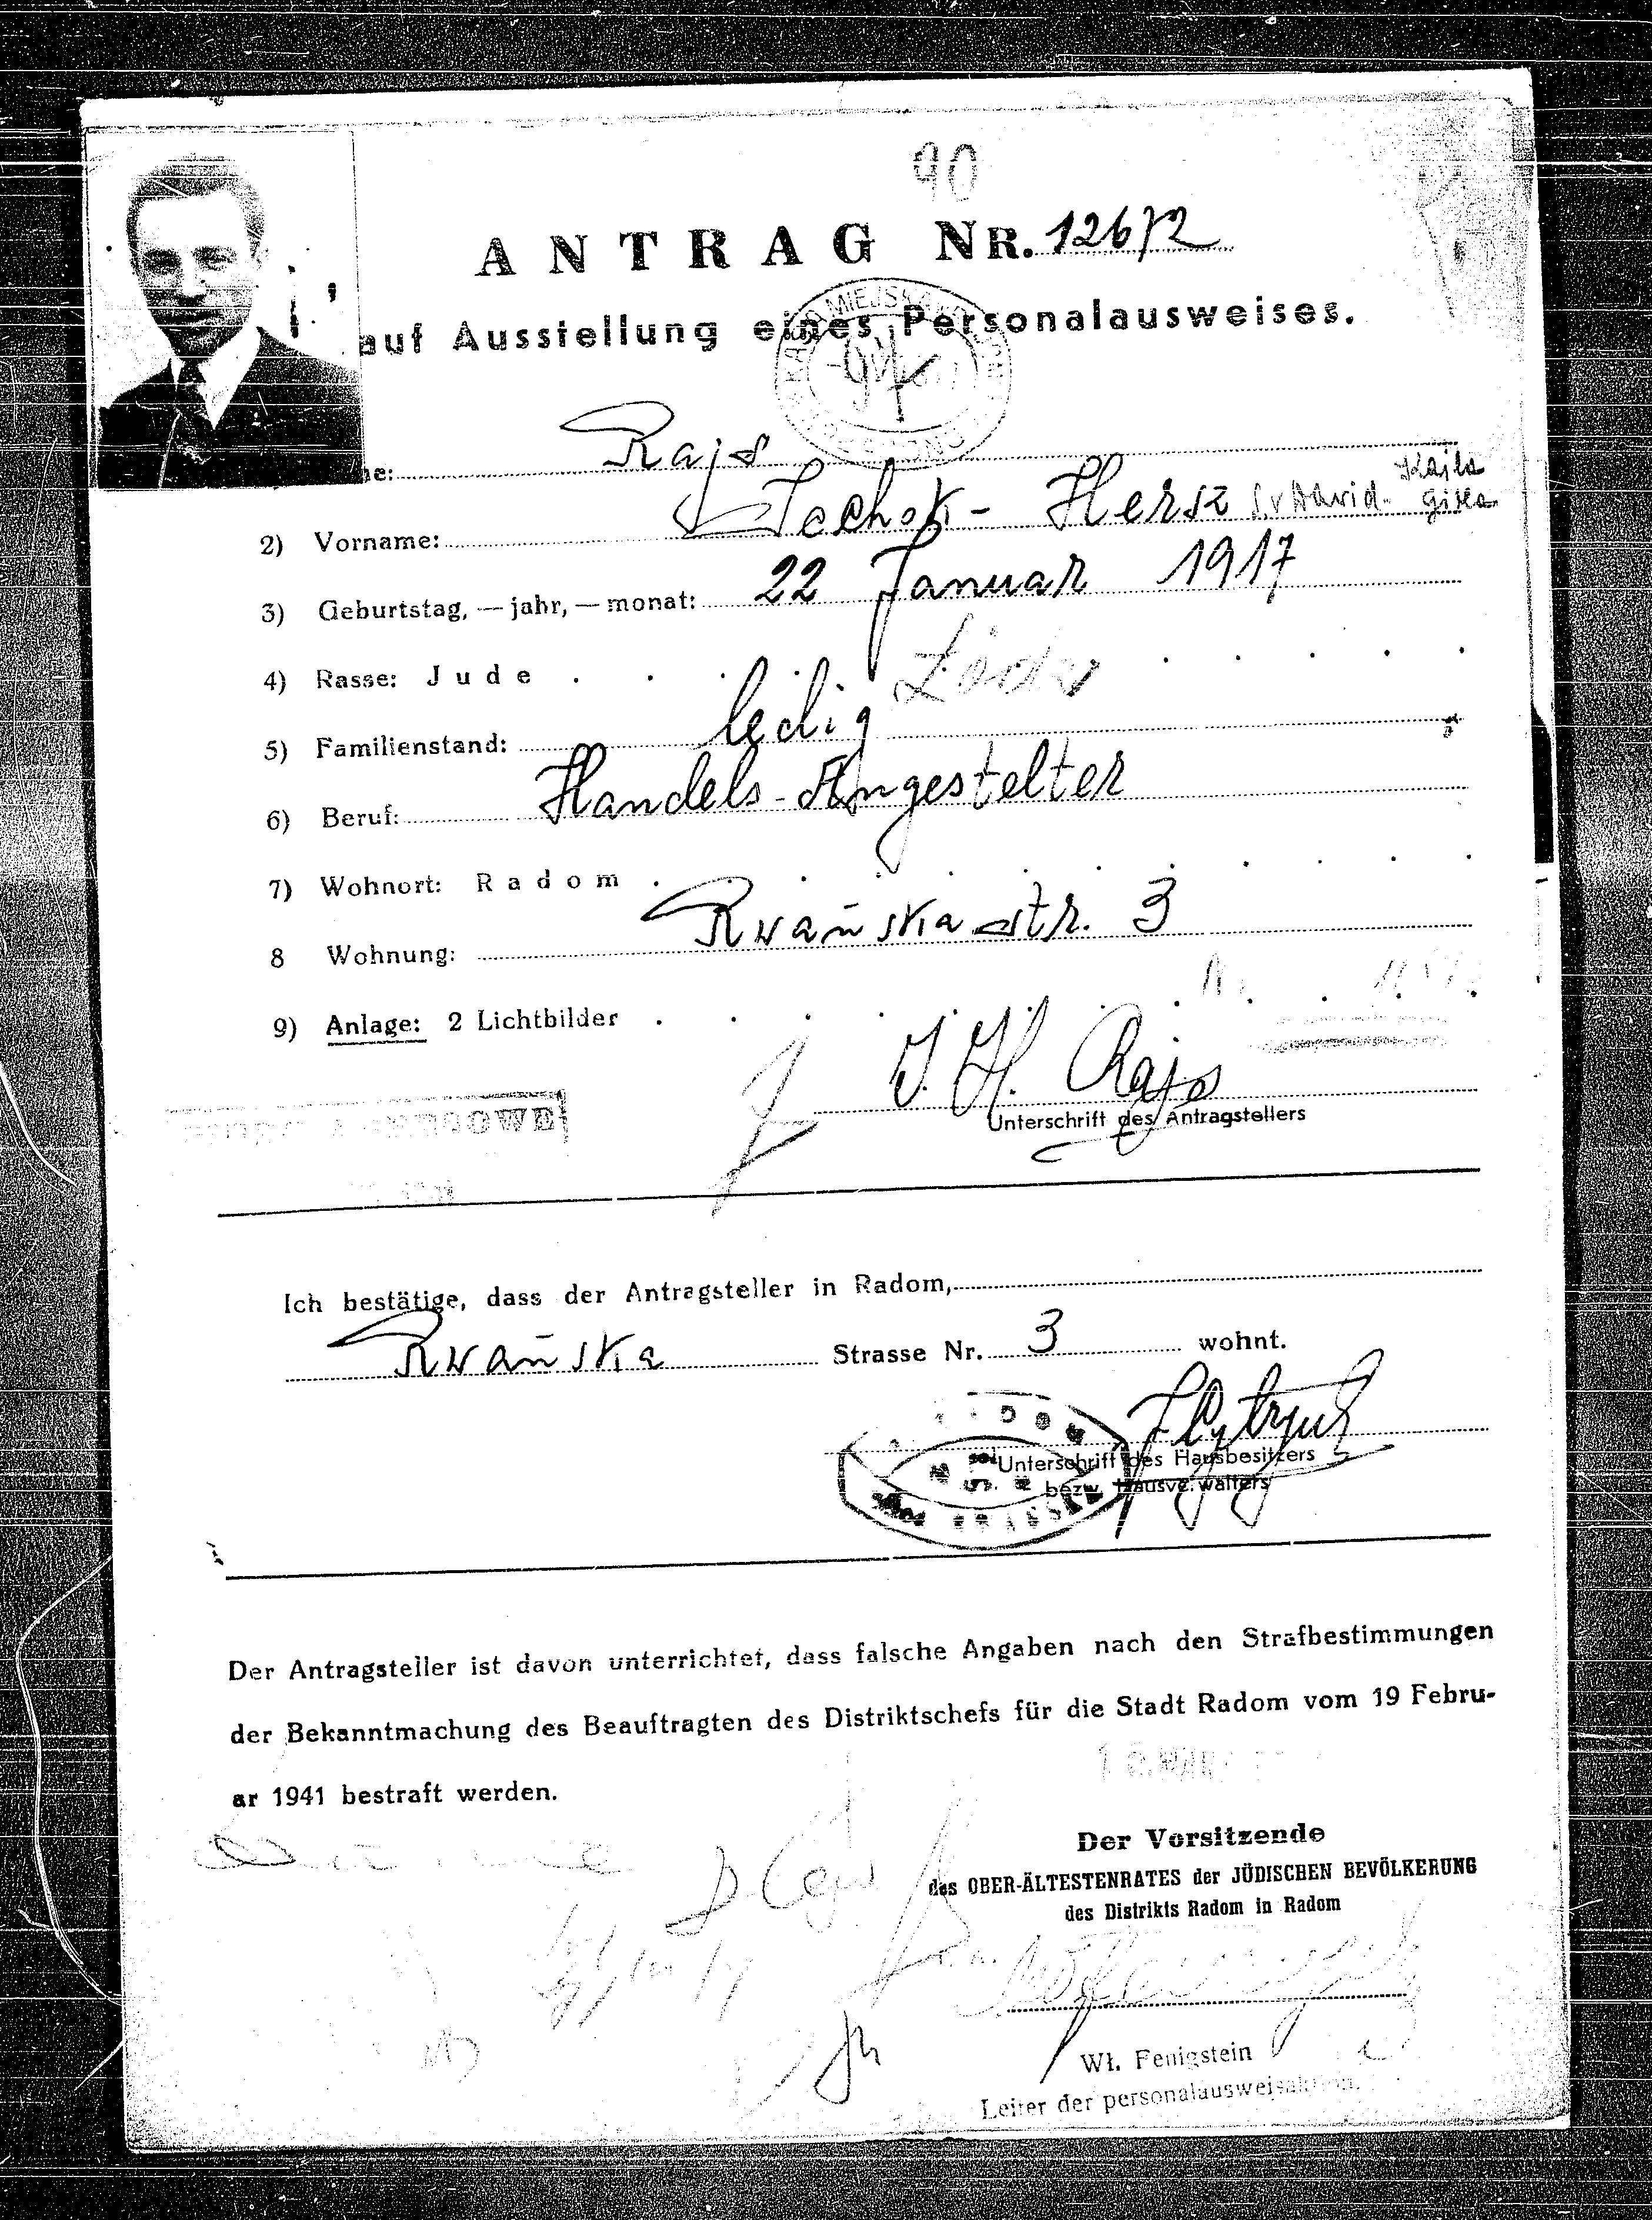 90
ANTRAG NR. 12672
auf Ausstellung eines Personalausweises.
MIEJSKA
Rajs
2) Vorname: Icchok - Hersz s.v Dawid - Kajla Gitla
3) Geburtstag, — jahr, — monat: 22 Januar 1917
4) Rasse: Jude
5) Familienstand: ledig
6) Beruf: Handels-Angestelter
7) Wohnort: Radom
8 Wohnung: Rwańska str. 3
9) Anlage: 2 Lichtbilder
J. H. Rajs
Unterschrift des Antragstellers
Ich bestätige, dass der Antragsteller in Radom,
Rwańska Strasse Nr. 3 wohnt.
Unterschrift des Hausbesitzers
bezw. Hausverwalters
Der Antragsteller ist davon unterrichtet, dass falsche Angaben nach den Strafbestimmungen
der Bekanntmachung des Beauftragten des Distriktschefs für die Stadt Radom vom 19 Febru-
ar 1941 bestraft werden.
Der Vorsitzende
des OBER-ÄLTESTENRATES der JÜDISCHEN BEVÖLKERUNG
des Distrikts Radom in Radom
Wł. Fenigstein
Leiter der personalausweisaktion.